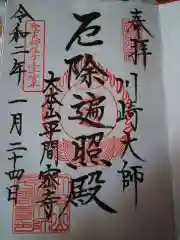 奉拝
川崎大師
厄除遍照殿
大本山平間寺
令和二年
一月二十四日